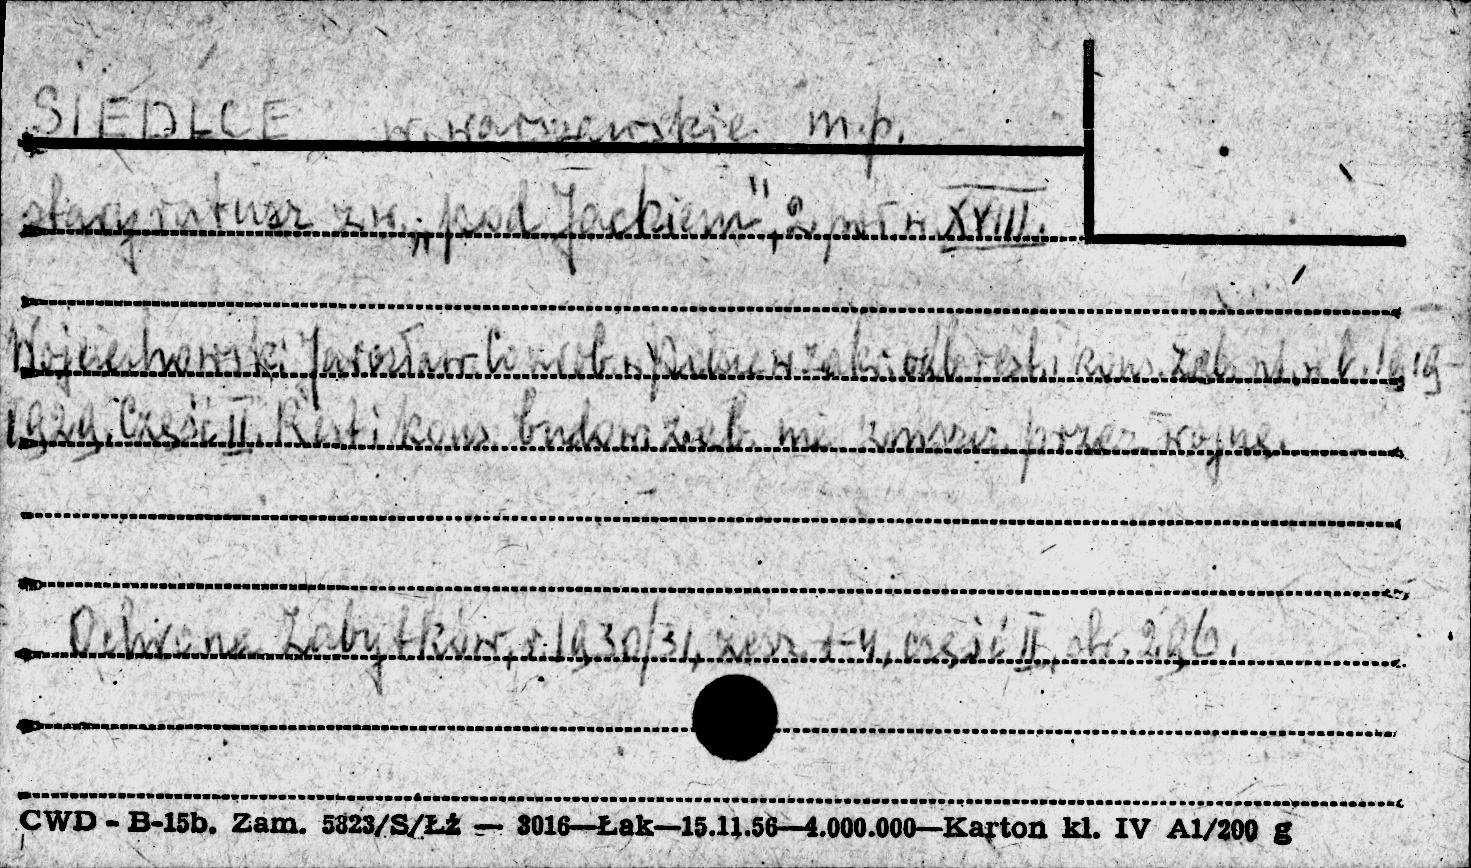 SIEDLCE w. warszawskie m.p.
stary ratusz zw. „pod Jackiem", 2 poł. w. XVIII.
Wojciechowski Jarosław. i kons. zab. w l. 1919-
1929. Część II. Rest i kons. budow. zab. przez wojnę.
Ochrona Zabytków, r. 1930/31, zesz. 1-4, część II, str. 296.
CWD - B-15b. Zam. 5823/S/ŁŻ — 3016—Łak—15.11.56—4.000.000—Karton kl. IV A1/200 g